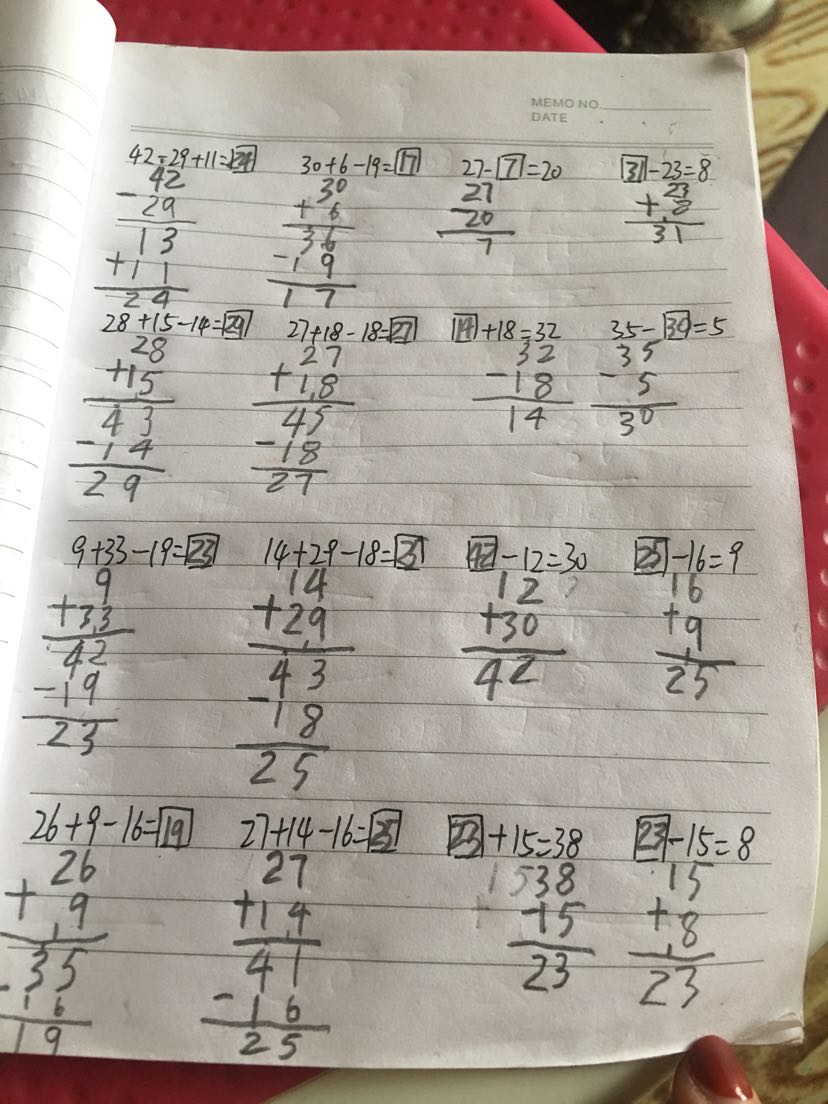 MEMO NO.
DATE
42-29+11=24 30+6-19=17 27-7=20 31-23=8
42 30 27 23
-29 +6 20 +8
13 36 7 31
+11 -19
24 17
28+15-14=29 27+18-18=27 14+18=32 35-30=5
28 27 32 35
+15 +18 -18 -5
43 45 14 30
-14 -18
29 27
9+33-19=23 14+29-18=25 42-12=30 25-16=9
9 14 12 16
+33 +29 +30 +9
42 43 42 25
-19 -18
23 25
26+9-16=19 27+14-16=25 23+15=38 23-15=8
26 27 1538 15
+9 +14 -15 +8
35 41 23 23
-16 -16
19 25